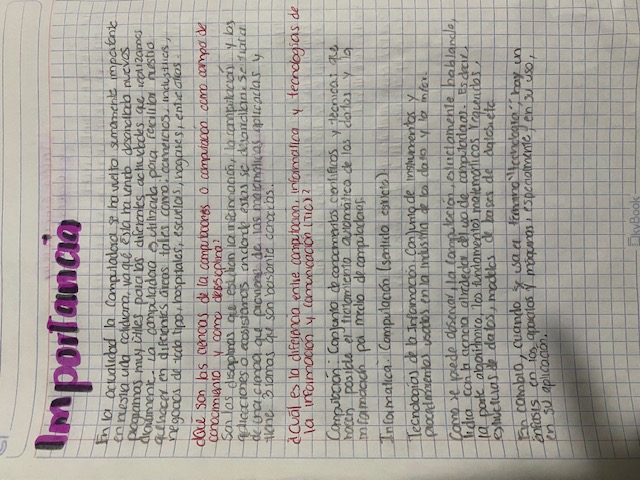 Importancia
En la actualidad la computadora se ha vuelto sumamente importante
en nuestra vida cotidiana, ya que esta ha venido desarrollado nuevos
programas muy útiles para las diferentes actividades que realizamos
diariamente. La computadora es utilizada para facilitar nuestro
quehacer en diferentes áreas tales como: comercios, industrias,
negocios de todo tipo, hospitales, escuelas, hogares, entre otras.
¿Qué son las ciencias de la computadores o computacion como campo de
conocimiento y como desisciplina?
Son las disciplinas que estudian la información, la computación y las
aplicaciones o ecosistemas en donde estas se desarrollan. Se trata
de una ciencia que proviene de las matemáticas aplicadas y
tiene 3 ramas que son bastante conocidas.
¿Cuál es la diferencia entre computacion, informatica y tecnologias de
la informacion y comunicación (TIC)?
Computación: Conjunto de conocimientos científicos y técnicas que
hacen posible el tratamiento automático de los datos y la
información por medio de computadoras.
Informatica: Computación (sentido estricto)
Tecnologías de la Información. Conjunto de instrumentos y
procedimientos usados en la industria de los datos y la infor.
Como se puede observar, la computación, estrictamente hablando,
lidia con la ciencia alrededor del uso de computadoras. Es decir,
la parte algorítmica, los fundamentos matemáticos requeridos,
estructuras de datos, modelos de bases de datos, etc
En cambio, cuando se usa el termino "tecnologia", hay un
énfasis en los aparatos y máquinas, especialmente, en su uso,
en su aplicación.
SkyBook